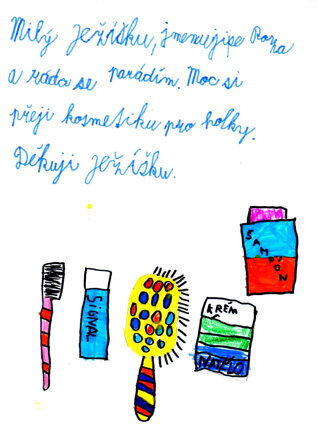 Milý Ježíšku, jmenuji se Rozza
a ráda se parádím. Moc si
přeji kosmetiku pro holky.
Děkuji Ježíšku.
ŠAMPÓN
SIGNAL
KRÉM